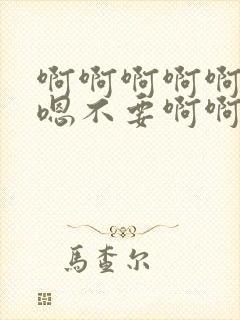 啊啊啊啊啊
嗯不要啊啊
馬查尔